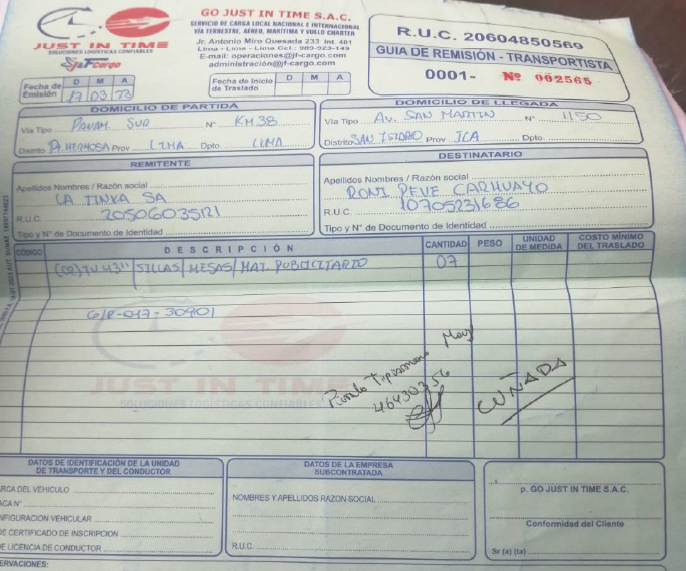 JUST IN TIME
SOLUCIONES LOGÍSTICAS CONFIABLES
J&F Cargo
GO JUST IN TIME S.A.C.
SERVICIO DE CARGA LOCAL NACIONAL E INTERNACIONAL
VÍA TERRESTRE, AÉREO, MARÍTIMA Y VUELO CHARTER
Jr. Antonio Miro Quesada 233 Int. 401
Lima - Lima - Lima Cel.: 989-923-149
E-mail: operaciones@jf-cargo.com
administración@jf-cargo.com
R.U.C. 20604850569
GUIA DE REMISIÓN - TRANSPORTISTA
0001- Nº 002565
Fecha de Emisión D M A
17 03 23
Fecha de Inicio de Traslado D M A
DOMICILIO DE PARTIDA
Vía Tipo PANAM. SUR Nº KM38
Distrito Pt HERMOSA Prov LIMA Dpto LIMA
DOMICILIO DE LLEGADA
Vía Tipo AV. SAN MARTIN Nº 1150
Distrito SAN ISIDRO Prov ICA Dpto.
REMITENTE
Apellidos Nombres / Razón social
LA TINKA SA
R.U.C. 20506035121
Tipo y Nº de Documento de Identidad
DESTINATARIO
Apellidos Nombres / Razón social
RONI PEVE CARHUAYO
R.U.C. 10705231686
Tipo y Nº de Documento de Identidad
CÓDIGO DESCRIPCIÓN CANTIDAD PESO UNIDAD DE MEDIDA COSTO MÍNIMO DEL TRASLADO
(02) TV 43" / SILLAS / MESAS / MAT. PUBLICITARIO 07
G/R-017-30901
46430356
CUÑADA
JUST IN TIME
SOLUCIONES LOGÍSTICAS CONFIABLES
DATOS DE IDENTIFICACIÓN DE LA UNIDAD DE TRANSPORTE Y DEL CONDUCTOR
ARCA DEL VEHICULO
ACA Nº
NFIGURACIÓN VEHICULAR
DE CERTIFICADO DE INSCRIPCION
DE LICENCIA DE CONDUCTOR
DATOS DE LA EMPRESA SUBCONTRATADA
NOMBRES Y APELLIDOS RAZON SOCIAL
R.U.C.
p. GO JUST IN TIME S.A.C.
Conformidad del Cliente
Sr (a) (ta)
ERVACIONES: